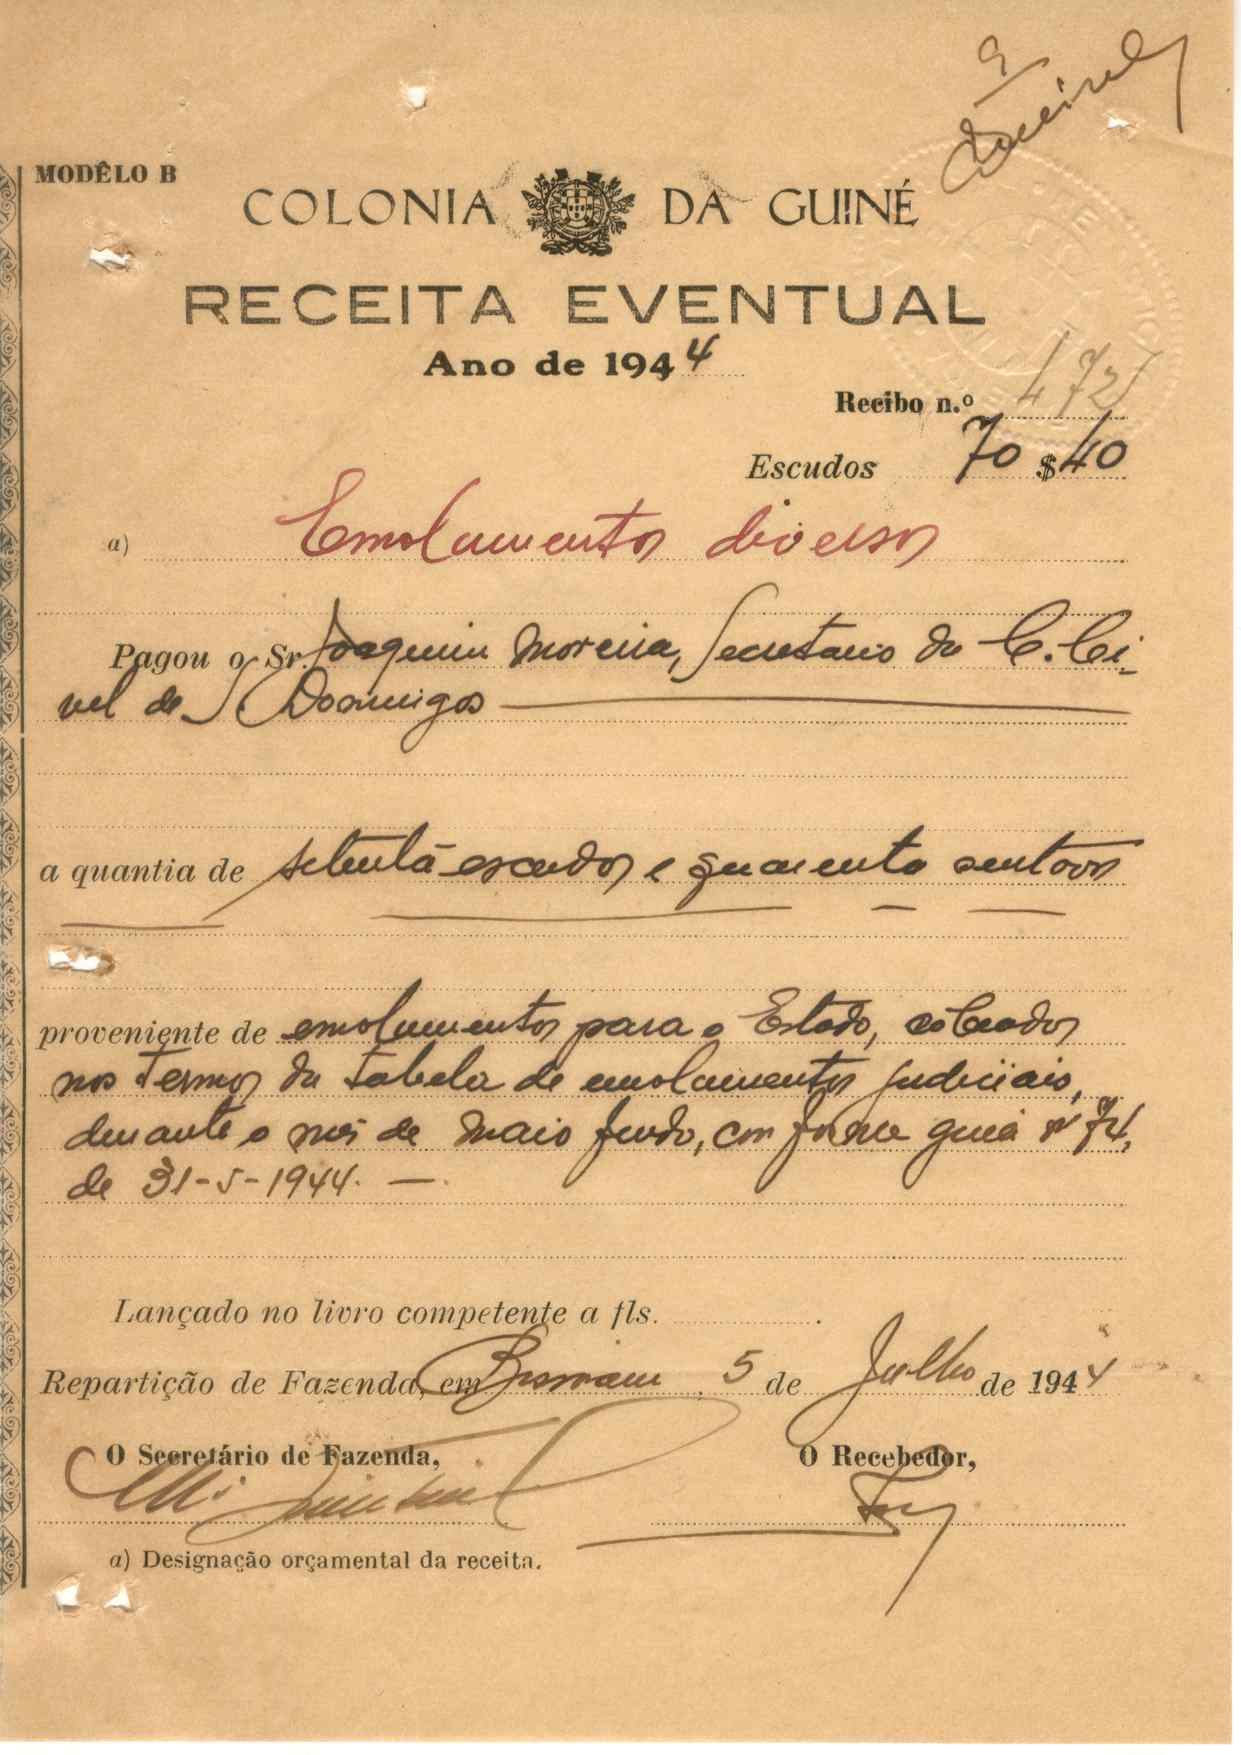 MODÊLO B
COLONIA DA GUINÉ
RECEITA EVENTUAL
Ano de 1944
Recibo n.º 472
Escudos 70$40
a) Emolumentos diversos
Pagou o Sr. Joaquim Moreira, Secretario da C. Ci-
vel de S. Domingos
a quantia de setenta escudos e quarenta centavos
proveniente de emolumentos para o Estado, cobrados
nos termos da tabela de emolumentos judiciais,
durante o mês de Maio findo, conforme guia nº 74,
de 31-5-1944. —.
Lançado no livro competente a fls. .
Repartição de Fazenda, em , 5 de Julho de 1944
O Secretário de Fazenda,
O Recebedor,
a) Designação orçamental da receita.